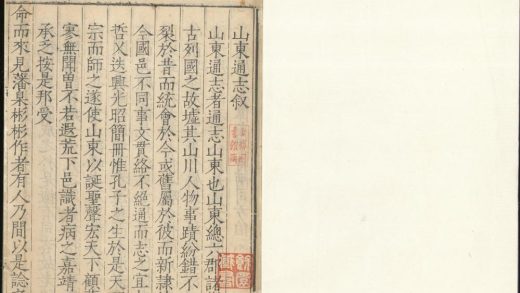 山東通志叙
山東通志者通志山東也山東總六郡諸
古列國之故墟其山川人物事蹟紛錯不
裂於昔而統會於今或舊屬於彼而新隸
今國邑不同事文貫絡不絶通而志之宜
哲乂迭興光昭簡冊惟孔子之生於是天
宗而師之遂使山東以誕聖聲宏天下顧
寥無聞曽不若遐荒下邑識者病之嘉靖
承乏按是邦受
命而來見藩臬彬彬作者有人乃間以是諗